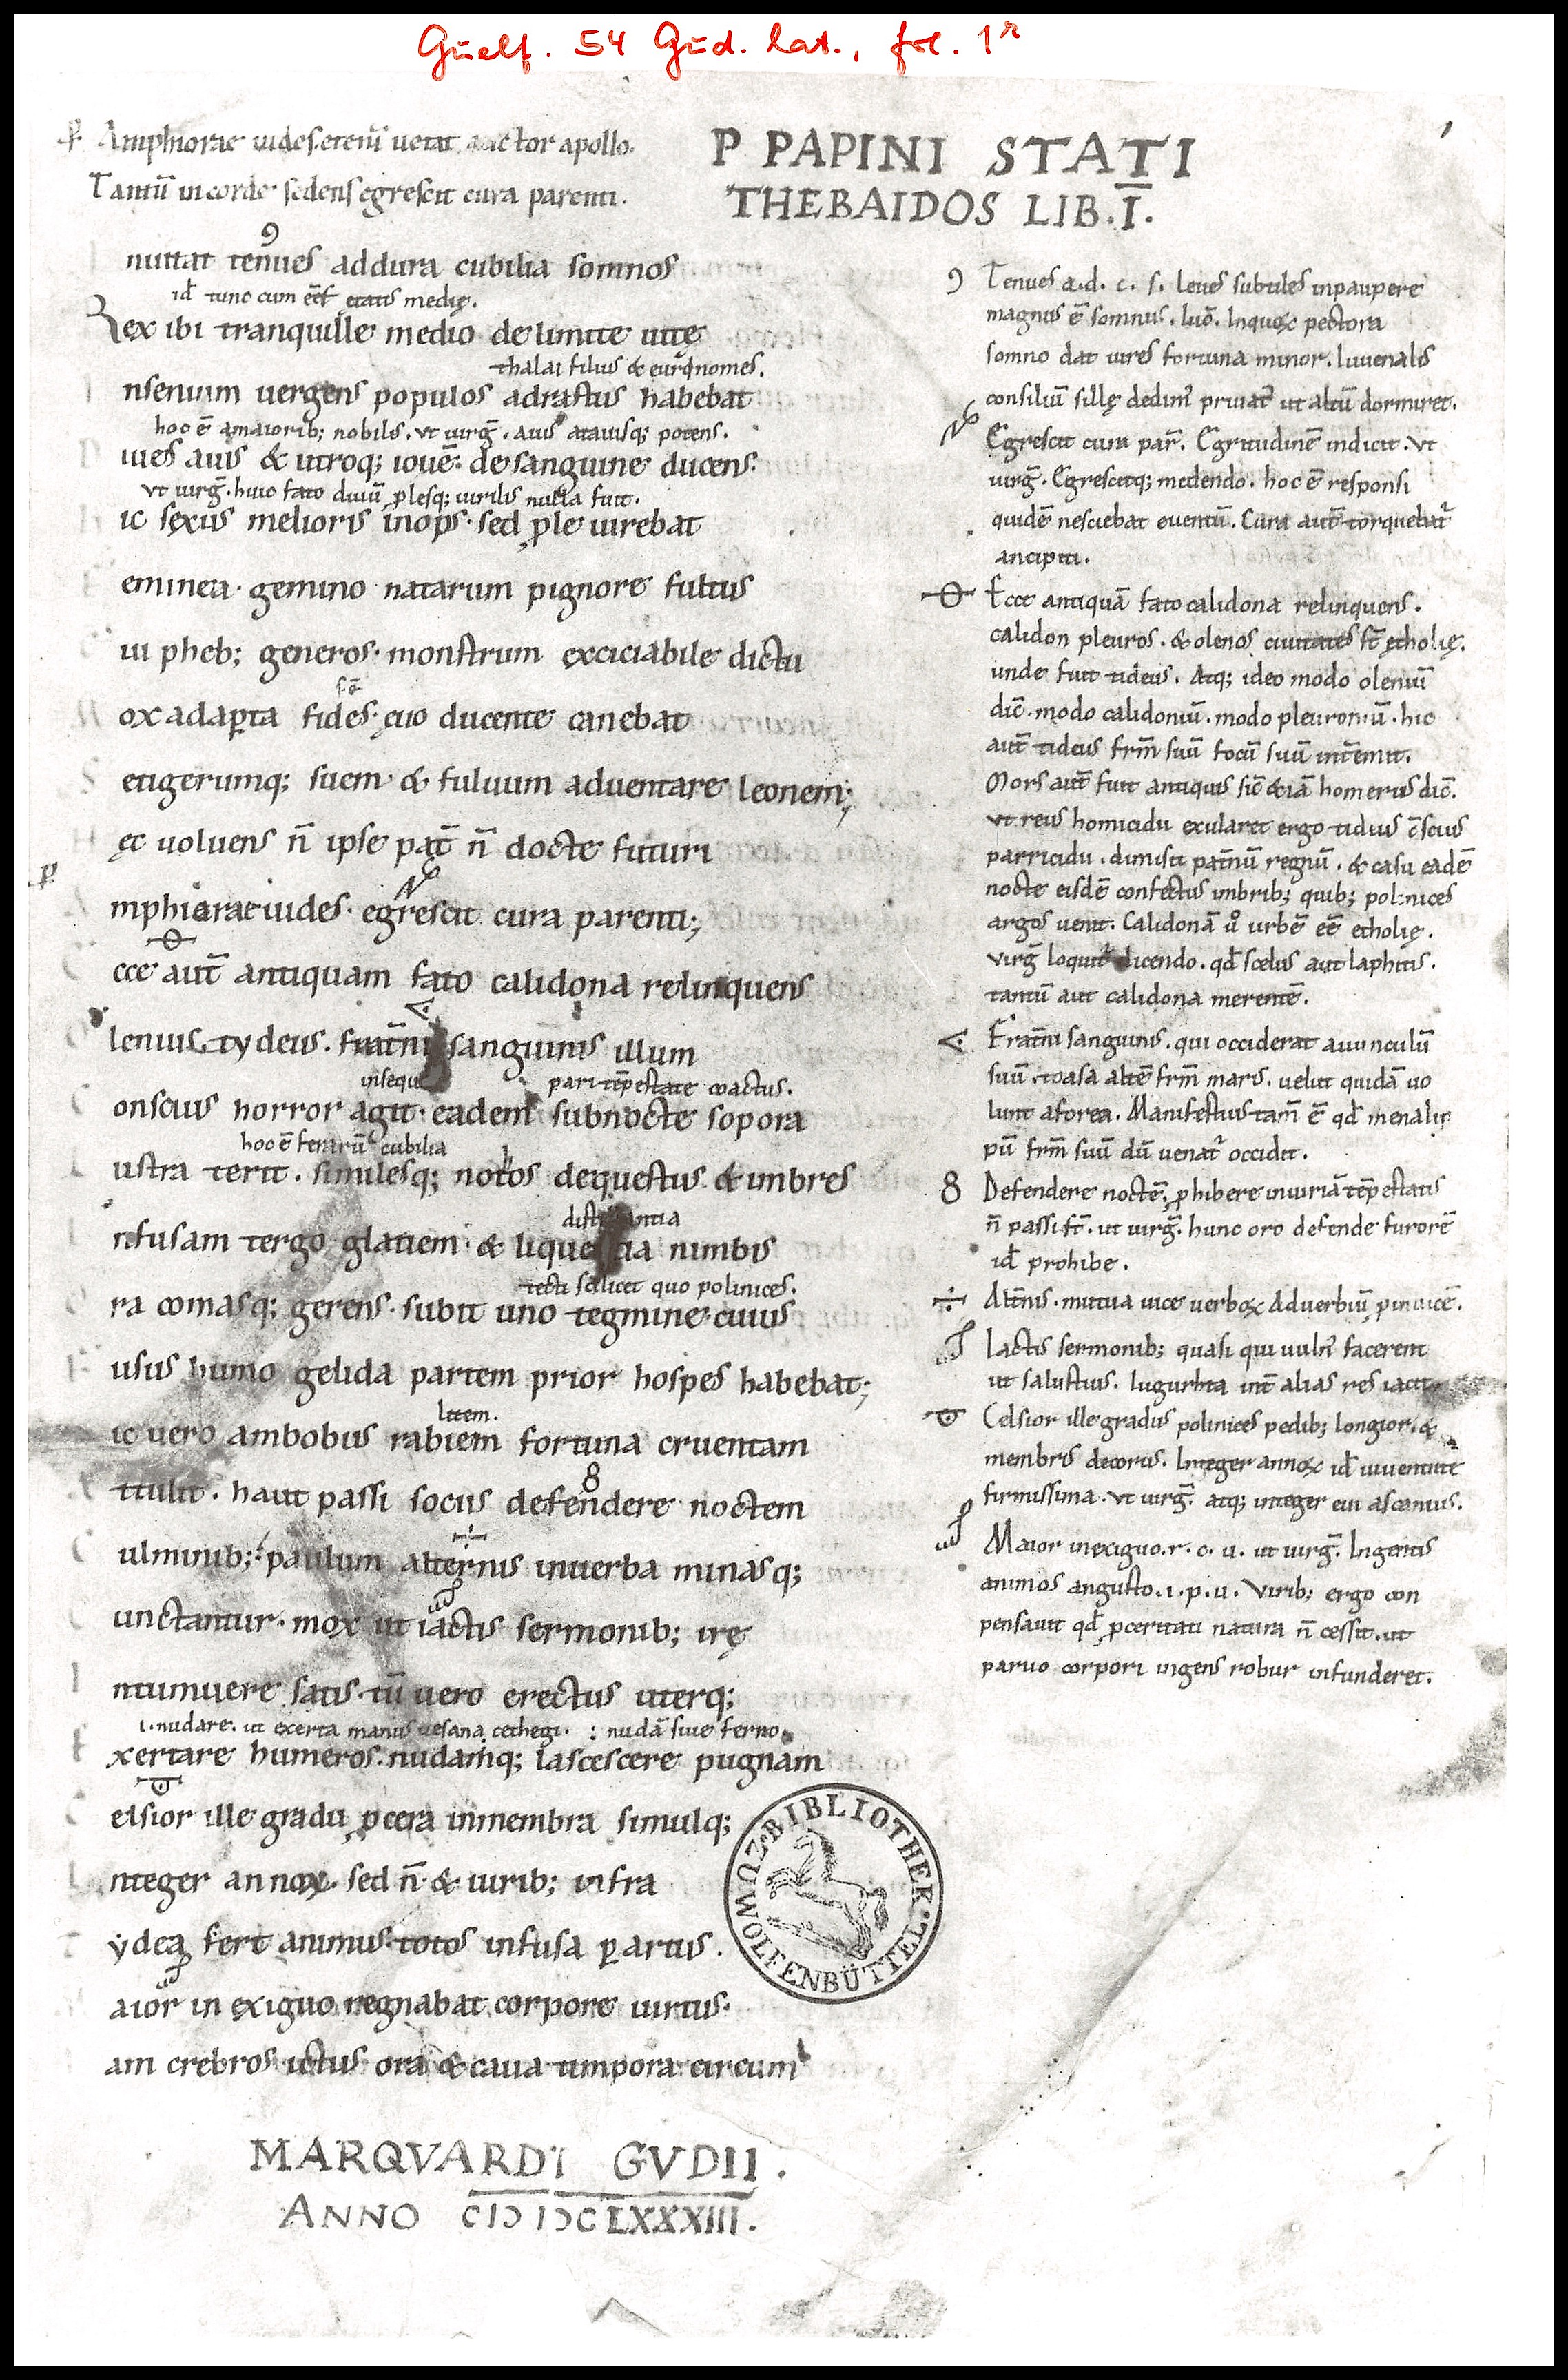 Guelf. 54 Gud. lat., fol. 1r
Amphiorae uides. etenī uetat auctor apollo.
Tantū in corde sedens egrescit cura parenti.
P PAPINI STATI
THEBAIDOS LIB. I.
nuttat tenues addura cubilia somnos
id tunc cum eēt etatis medię.
Rex ibi tranquille medio de limite uitę
thalai filius & eurinomes.
nsenium uergens populos adrastus habebat
hoc ē amaiorib; nobilis. ut uirḡ. Auis atauisq; potens.
iues auis & utroq; iouē de sanguine ducens.
Ut uirḡ. huic fato diuū plesq; uirilis nulla fuit.
ic sexus melioris inops. sed ple uirebat
eminea. gemino natarum pignore fultus
ui pheb; generos. monstrum exciciabile dictu
ox adapta fides. ęuo ducente canebat
etigerumq; suem. & fuluum aduentare leonem;
ęc uoluens n̄ ipse pat̄ n̄ docte futuri
mphiorae iudes. egrescit cura parenti;
cce aut̄ antiquam fato calidona relinquens
lenius tydeus. frat̄ni sanguinis illum
insequi
pari tēpestate coactus.
onscius horror agit. eadem subnocte sopora
hoc ē ferarū cubilia
ustra terit. similesq; nothos dequestus & imbres
nfusam tergo glatiem. & liquentia nimbis
tecti scilicet quo polinices.
ra comasq; gerens. subit uno tegmine cuius
usus humo gelida partem prior hospes habebat;
litem.
ic uero ambobus rabiem fortuna cruentam
ttulit. haut passi sociis defendere noctem
ulminib; paulum alternis inuerba minasq;
unctantur. mox ut iactis sermonib; irę
ntumuere satis. tū uero erectus uterq;
i. nudare. ut exerta manus uesana cethegi. : nudā siue ferro.
xertare humeros. nudamq; lascescere pugnam
elsior ille gradu pcera inmembra simulq;
nteger annoꝝ. sed n̄ & uirib; infra
ydea fert animus totos infusa p artus.
aior in exiguo regnabat corpore uirtus.
am crebros ictus ora & caua timpora circum
MARQVARDI GVDII.
ANNO CIↃ IↃC LXXXIII.
Tenues a.d. c. s. leues subtiles inpaupere
magnus ē somnus. lucā. Inquox pectora
somno dat uires fortuna minor. Iuuenalis
consiliū sillę dedim' priuat' ut altū dormiret.
Egrescit cura par̄. Egritudinē indicit. Ut
uirḡ. Egrescitq; medendo. hoc ē responsi
quidē nesciebat euentū. Cura aut̄ torquebat'
ancipiti.
Ecce antiquā fato calidona relinquens.
calidon pleuros. & olenos ciuitates st̄ ętholię.
unde fuit tideus. Atq; ideo modo oleniū
dic̄. modo calidoniū. modo pleuroniū. hic
aut̄ tideus frm̄ suū focū suū int̄emit.
Mors aut̄ fuit antiquis sic̄ &iā homerus dic̄.
ut reus homicidii exularet ergo tidius c̄scius
parricidii. dimisit pat̄nū regnū. & casu eadē
nocte eisdē confectus imbrib; quib; polinices
argos uenit. Calidonā u° urbē eē etholię.
uirḡ loquit' dicendo. qd̄ scelus aut laphitis.
tantū aut calidona merentē.
Frat̄ni sanguinis. qui occiderat auunculū
suū. toasa altē frm̄ maris. uelut quidā uo
lunt aforea. Manifestius tam̄ ē qd̄ menalip
pū frm̄ suū dū uenat' occidit.
Defendere noctē, phibere iniuriā tēpestatis
n̄ passi st̄. ut uirḡ. hunc oro defende furorē
id̄ prohibe.
Alt̄nis. mutua uice uerboꝝ Aduerbiū, p inuicē.
Iactis sermonib; quasi qui uuln' facerent
ut salustius. Iugurhta int̄ alias res iacit
Celsior ille gradus polinices pedib; longior. &
membris decorus. Integer annoꝝ id̄ iuuentute
firmissima. Ut uirḡ. atq; integer eui ascanius.
Maior inexiguo. r. c. u. ut uirḡ. Ingentis
animos angusto. i. p. u. Virib; ergo con
pensauit qd̄ pceritati natura n̄ cessit. ut
paruo corpori ingens robur infunderet.
BIBLIOTHEK. WOLFENBÜTTEL